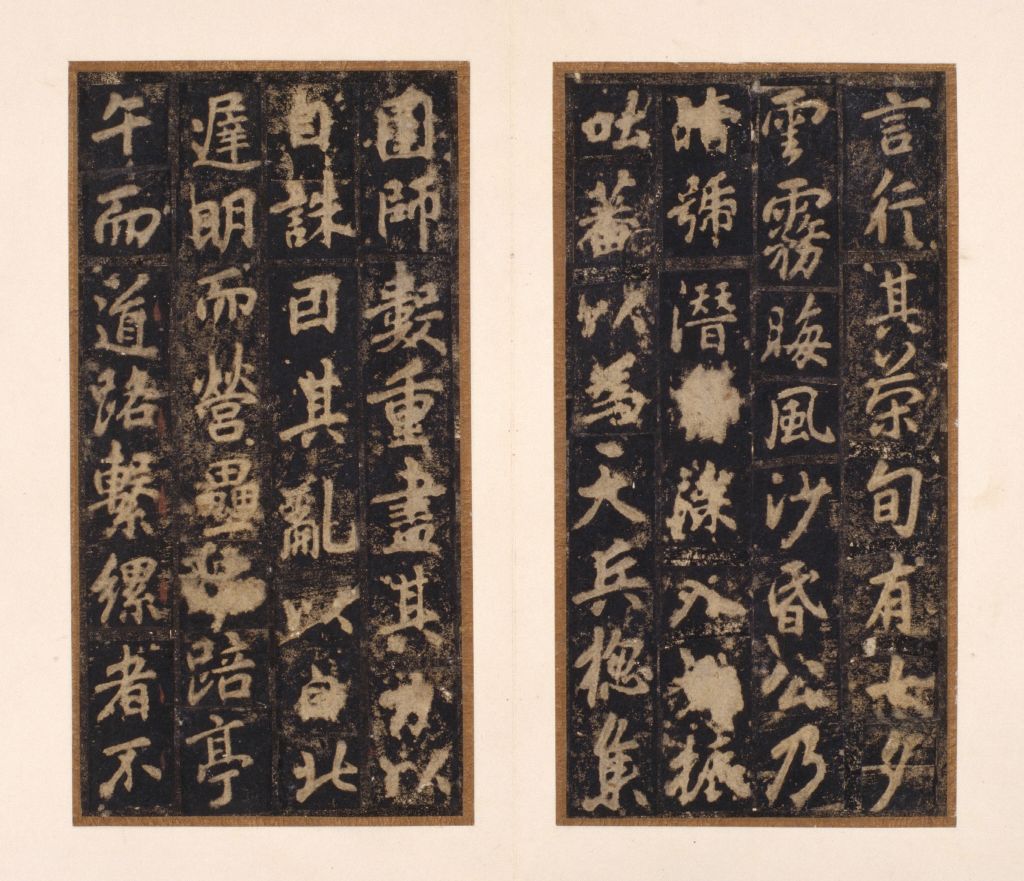 言行其策旬有七夕
雲霧晦風沙昏公乃
號潛入振
吐蕃以為天兵揔集
圍師數重盡其力以
自誅因其亂以自北
遲明而營壘踣亭
午而道路繫縲者不